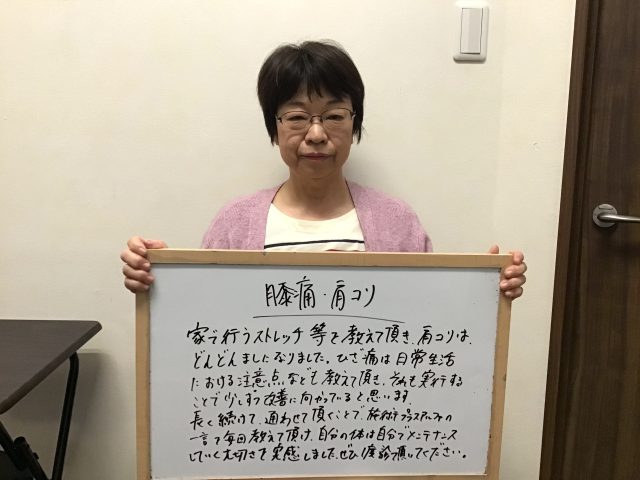 膝痛・肩コリ
家で行うストレッチ等を教えて頂き、肩コリは、
どんどんましになりました。ひざ痛は日常生活
における注意点なども教えて頂き、それを実行する
ことで少しずつ改善に向かっていると思います。
長く続けて、通わせて頂くことで、施術プラスアルファの
一言を毎回教えて頂け、自分の体は自分でメンテナンス
していく大切さを実感しました。ぜひ1度診て頂いてください。